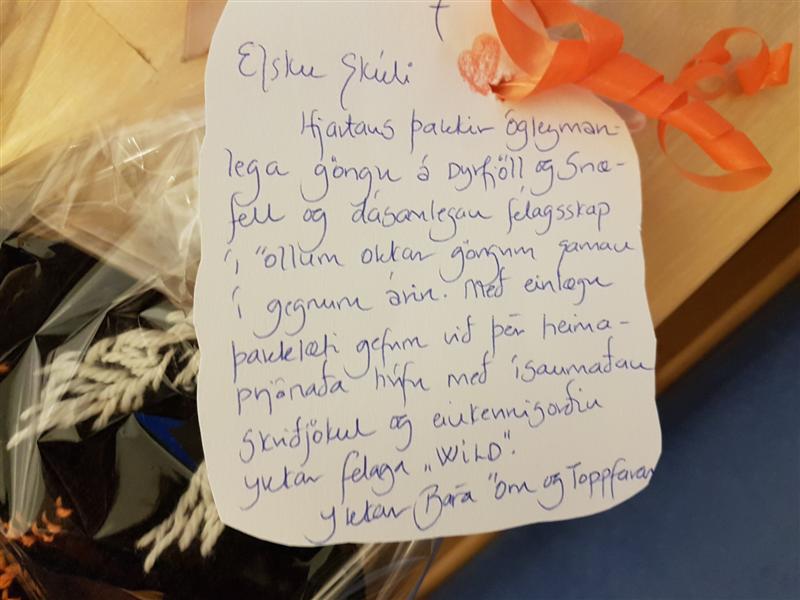 Elsku Skúli
Hjartans þakkir ógleyman-
lega göngu á Dyrfjöll og Snæ-
fell og dásamlegan félagsskap
í öllum okkar göngum saman
í gegnum árin. Með einlægu
þakklæti gefum við þér heima-
prjónaða húfu með ísaumaðan
skriðjökul og einkennisorðin
ykkar félaga „WILD".
ykkar Bára Örn og Toppfarar